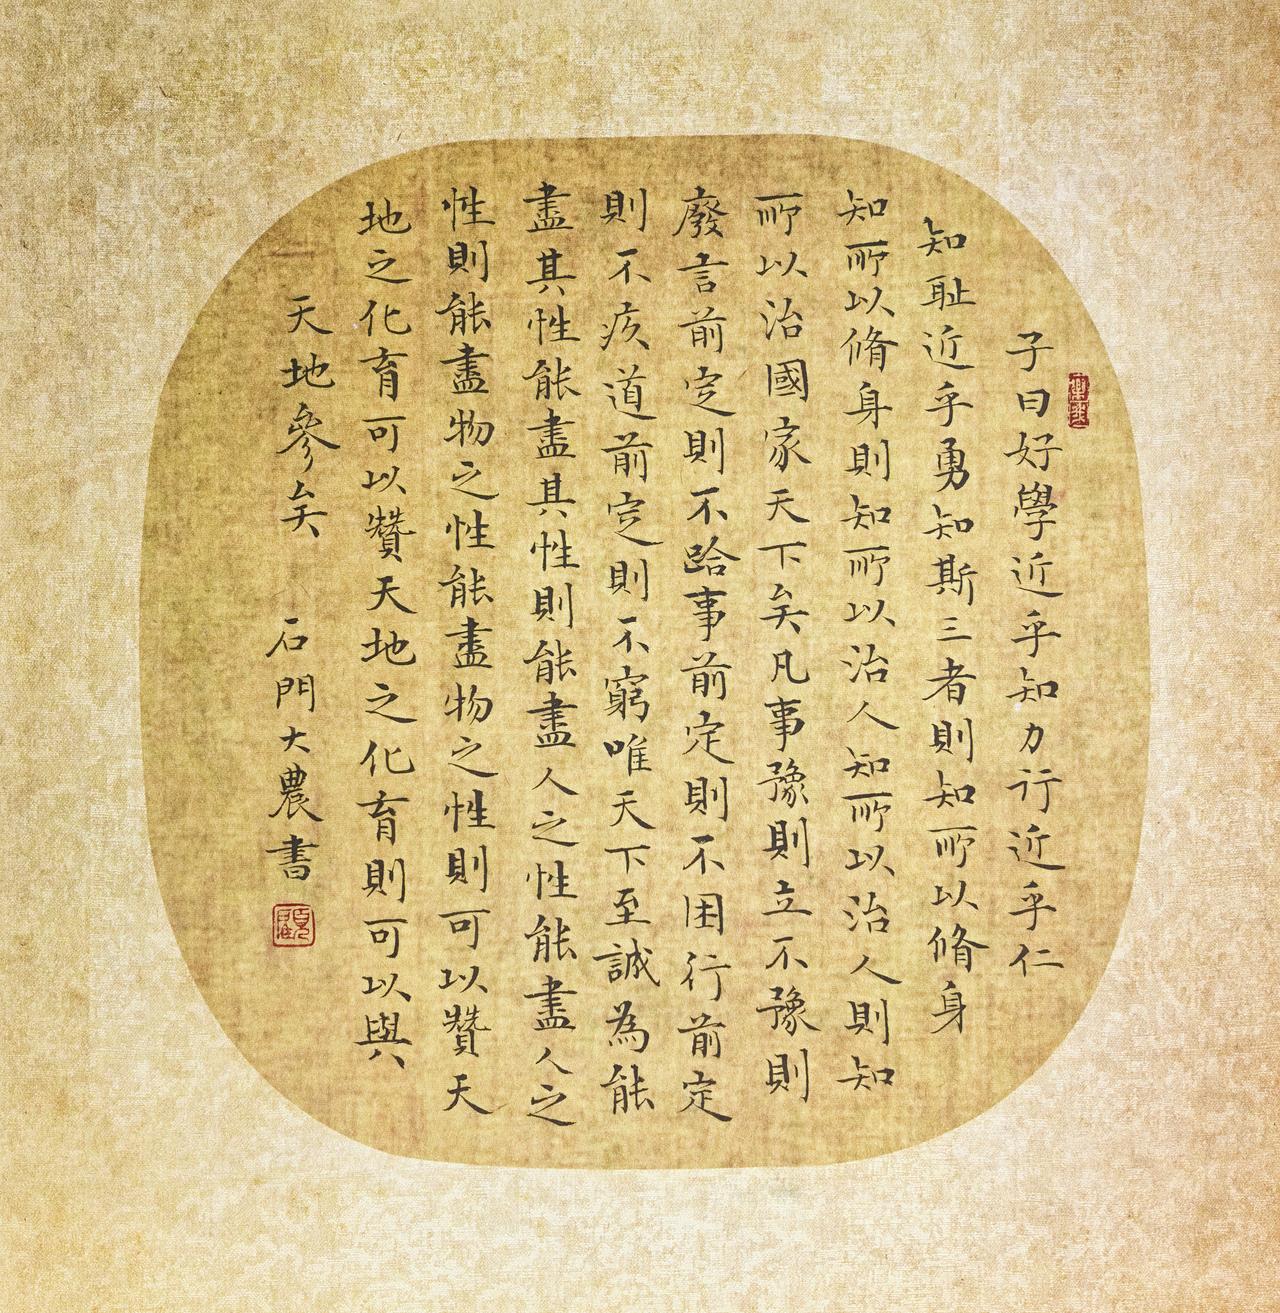 子曰好學近乎知力行近乎仁
知耻近乎勇知斯三者則知所以脩身
知所以脩身則知所以治人知所以治人則知
所以治國家天下矣凡事豫則立不豫則
廢言前定則不跲事前定則不困行前定
則不疚道前定則不窮唯天下至誠為能
盡其性能盡其性則能盡人之性能盡人之
性則能盡物之性能盡物之性則可以贊天
地之化育可以贊天地之化育則可以與
天地參矣
石門大農書